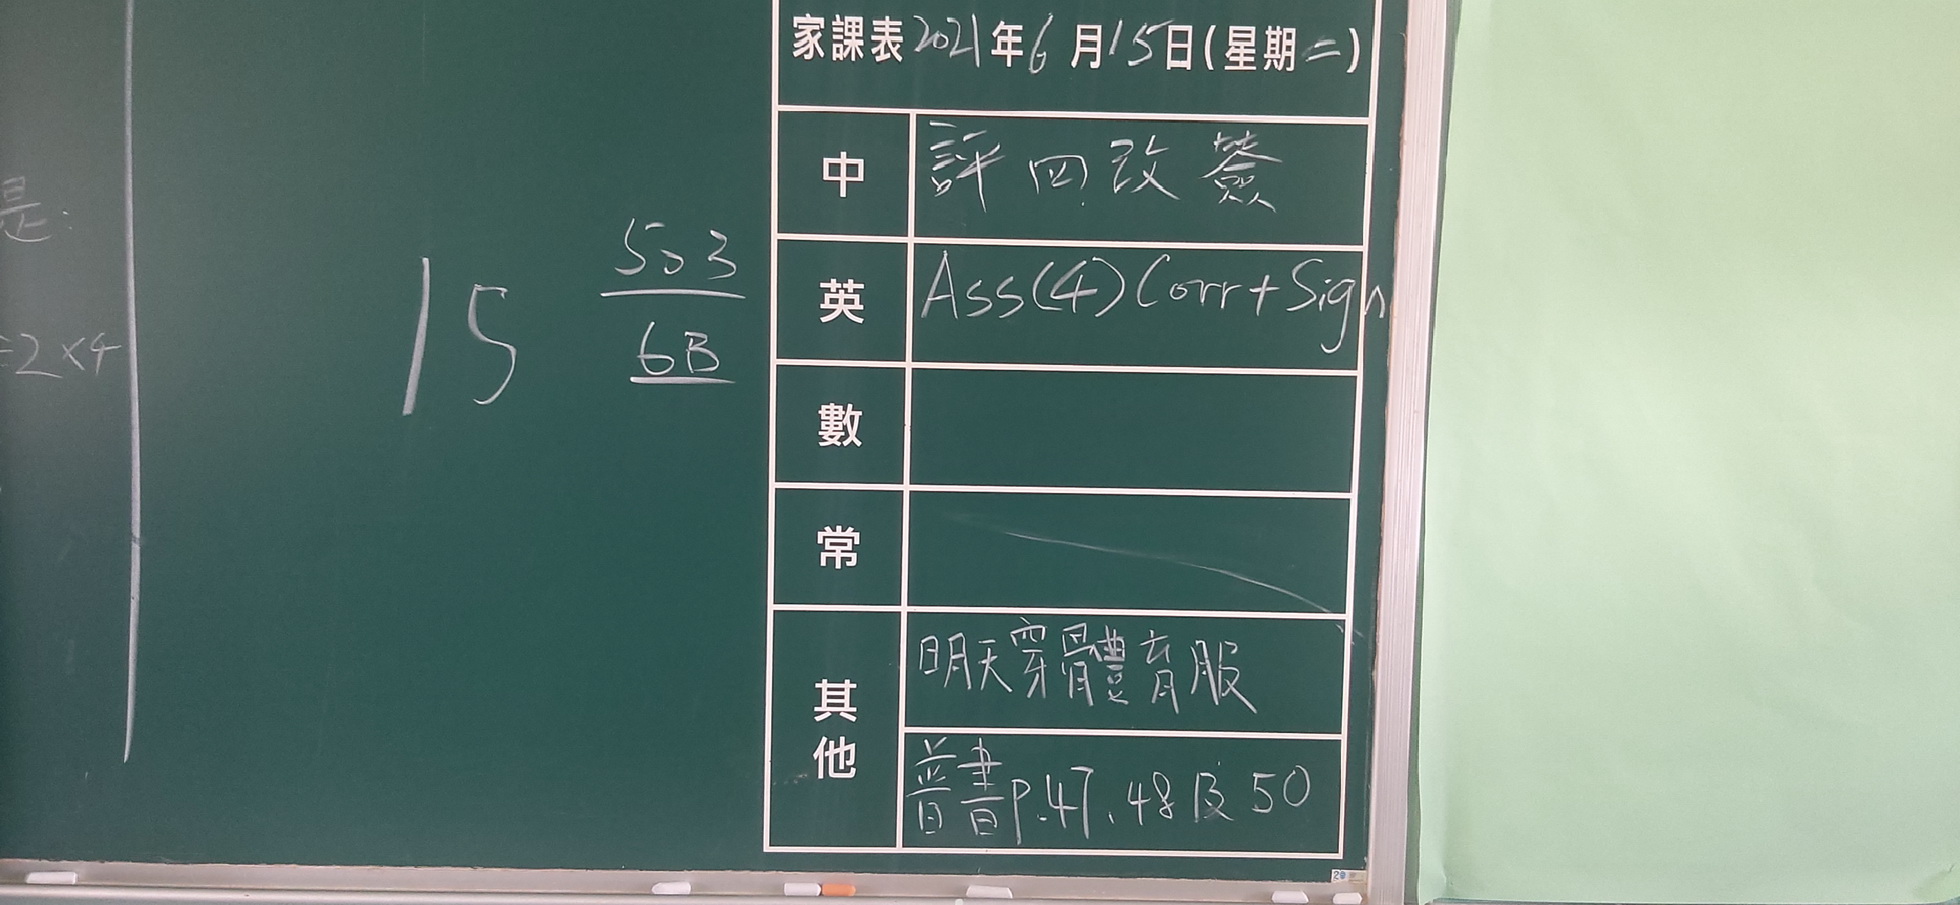 家課表2021年6月15日(星期二)
中 評四改簽
英 Ass(4)Corr+Sign
數
常
其他 明天穿體育服
普書P.47、48及50
是:
=2×4
15
503
6B